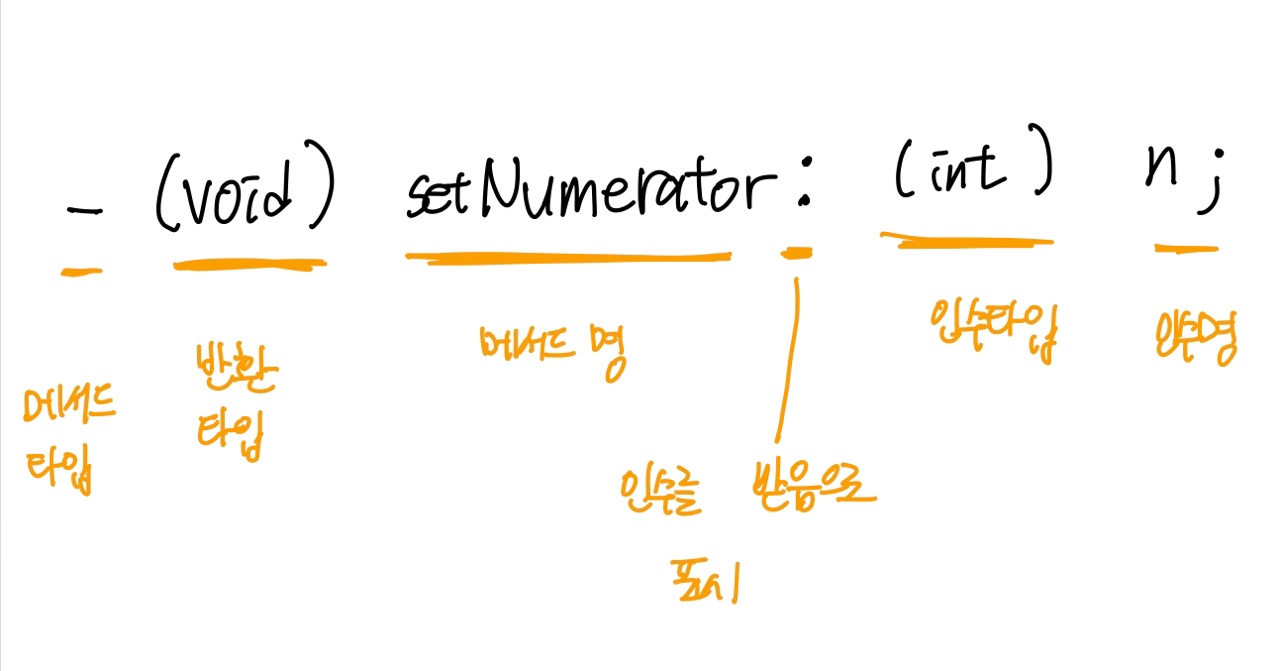 - (void) setNumerator : (int) n ;
메서드
타입
반환
타입
메서드 명
인수를 받음으로
표시
인수타입
인수명